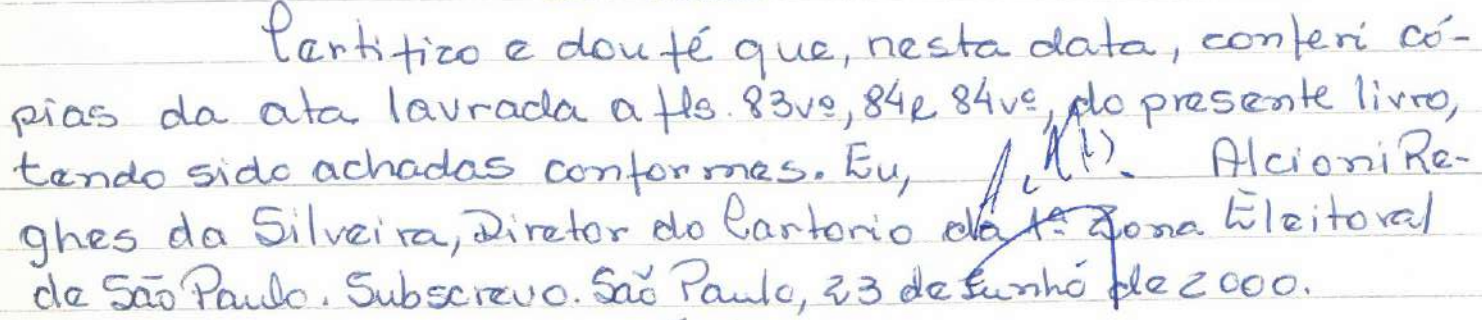 Certifico e dou fé que, nesta data, conferi có-
pias da ata lavrada a fls. 83vº, 84 e 84vº, do presente livro,
tendo sido achadas conformes. Eu, Alcioni Re-
ghes da Silveira, Diretor do Cartorio da 1ª Zona Eleitoral
de São Paulo. Subscrevo. São Paulo, 23 de Junho de 2000.